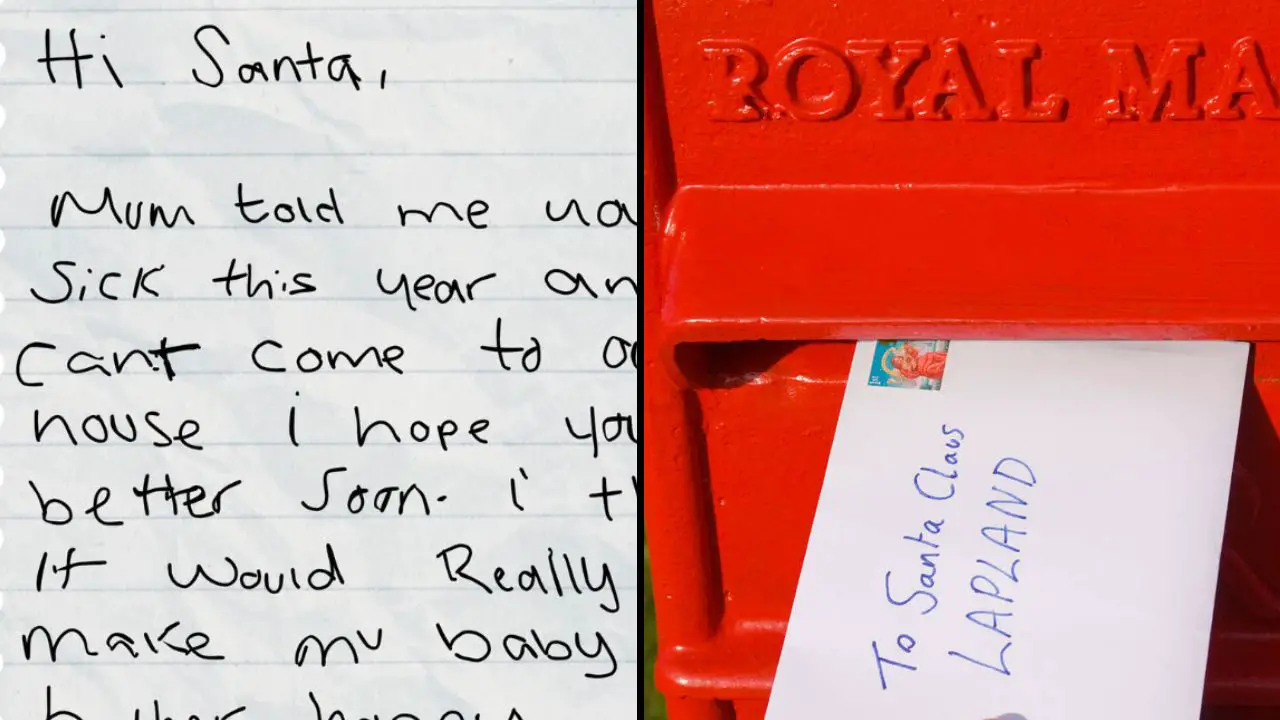 Hi Santa,
Mum told me
Sick this year an
Cant come to
house i hope you
better Soon. i
It would Really
make my baby
happy
ROYAL MA
To Santa Claus
LAPLAND
1st